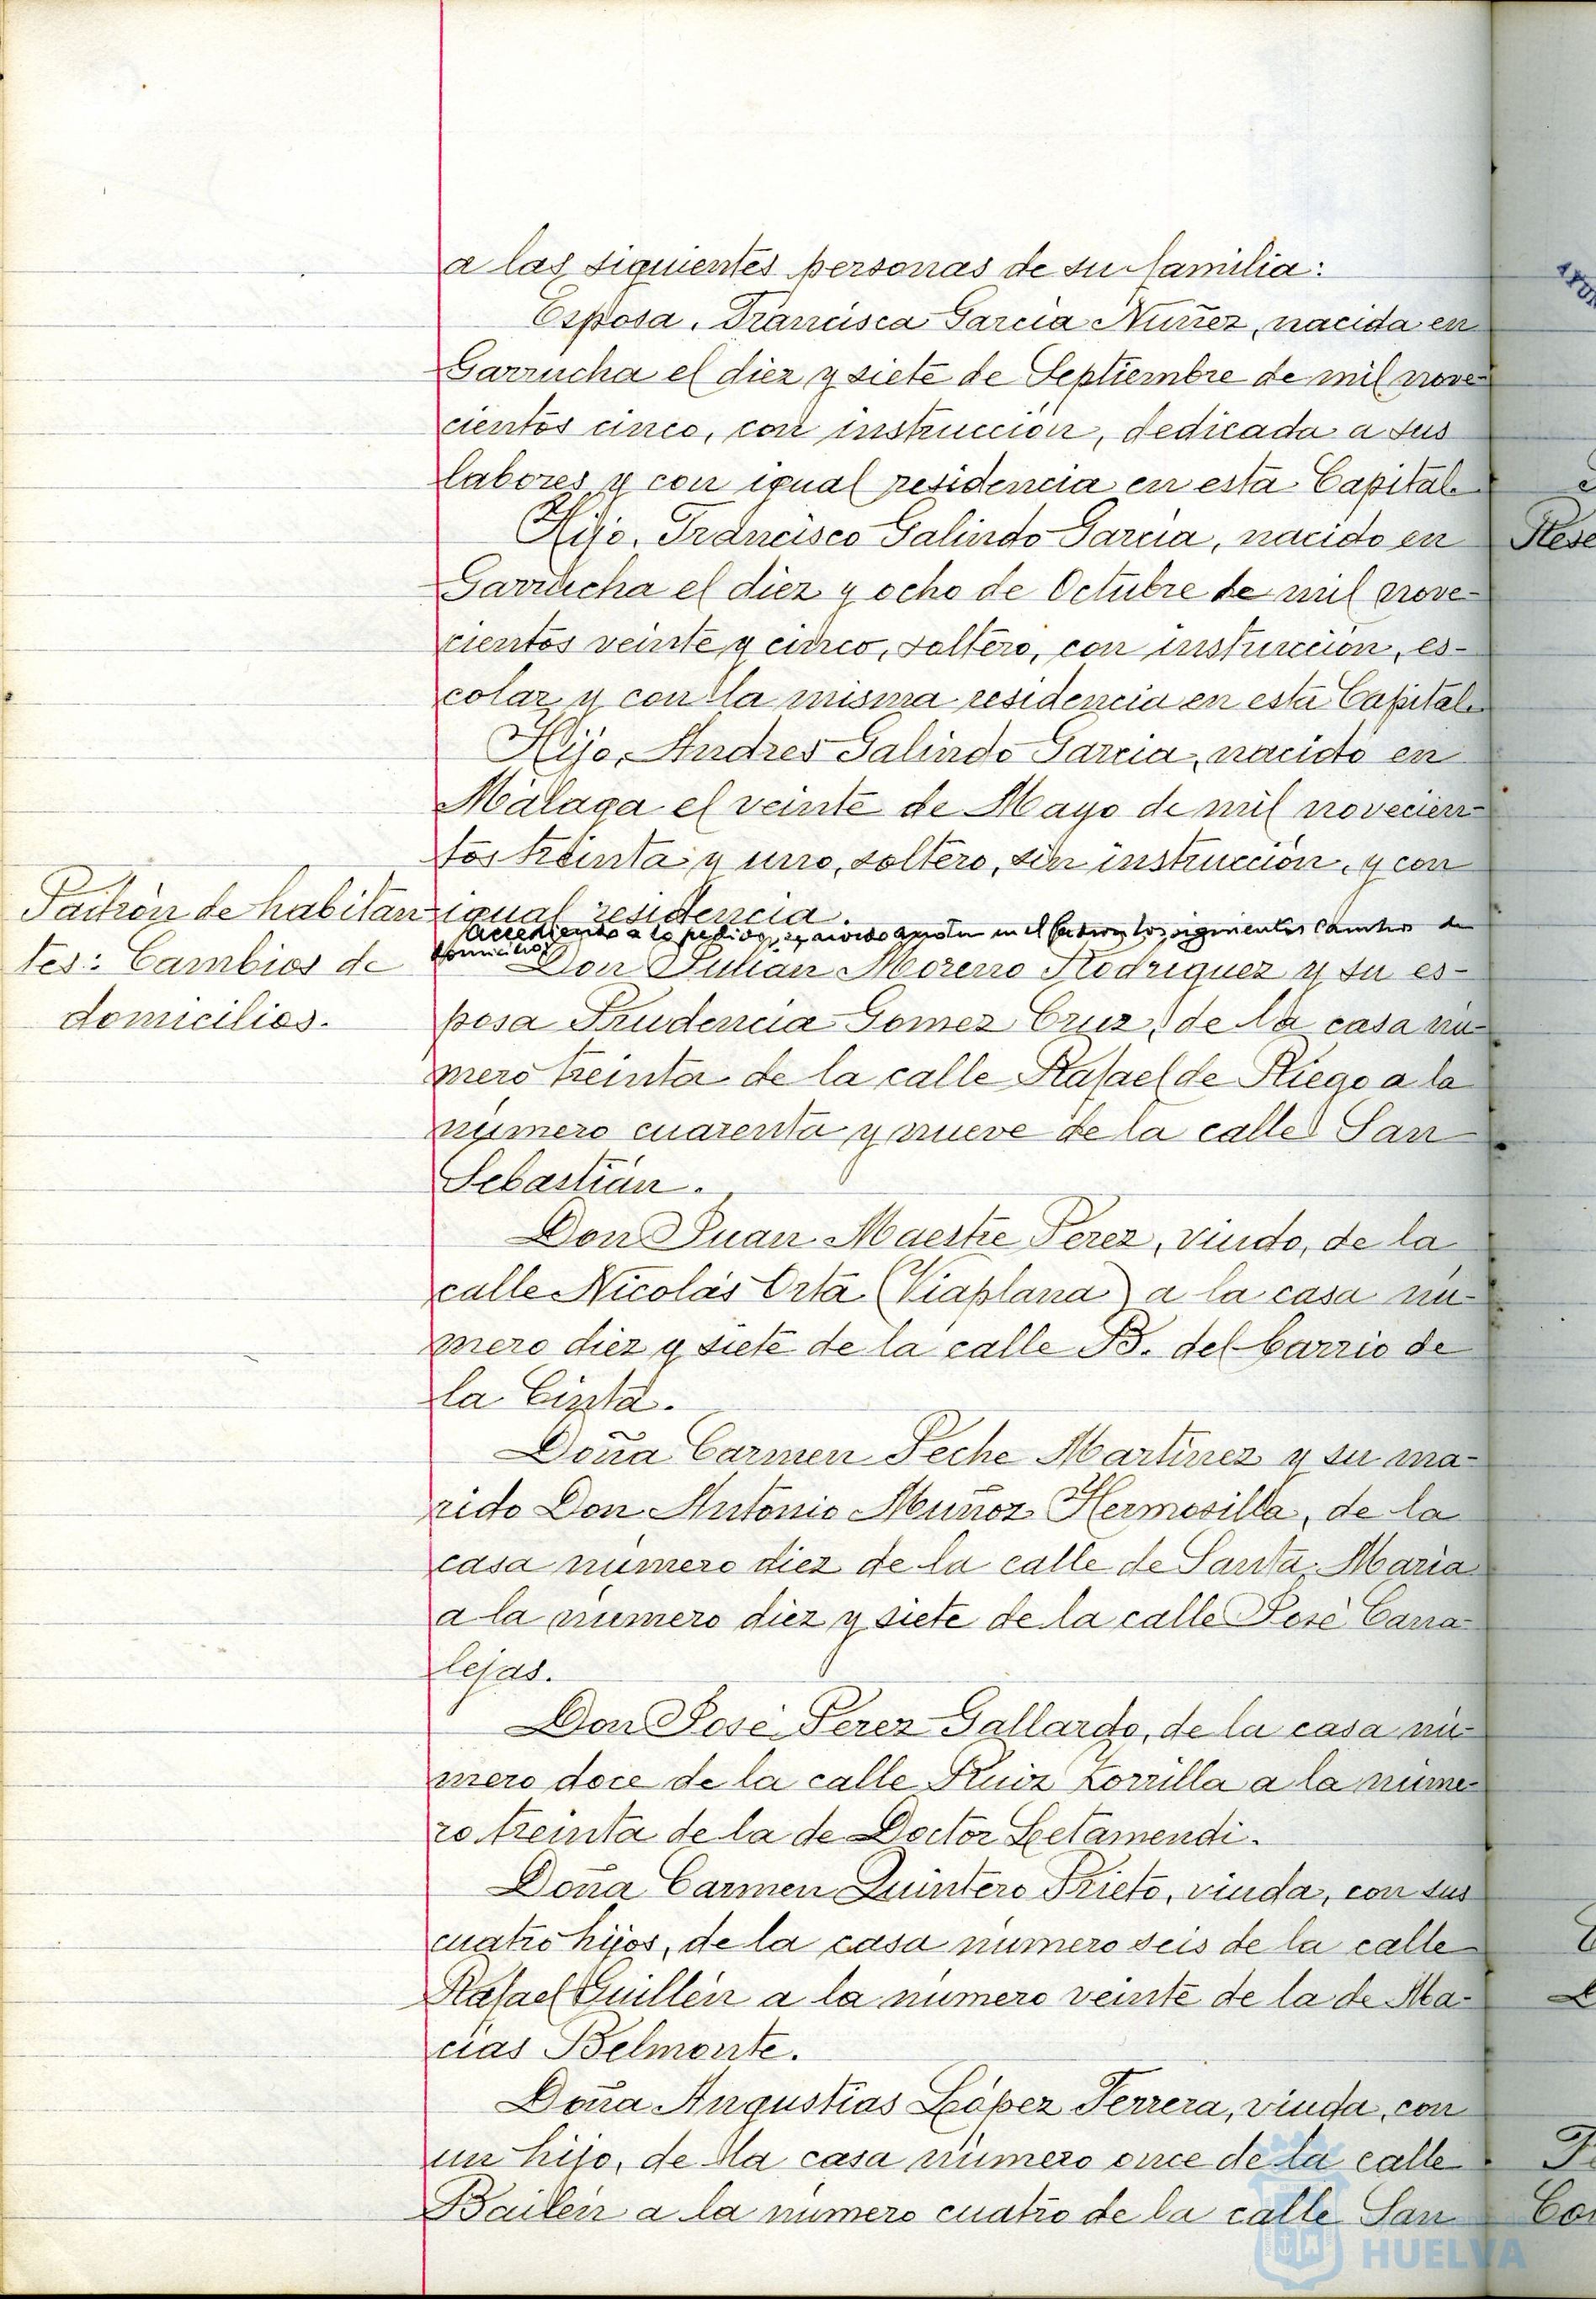 a las siguientes personas de su familia:
Esposa, Francisca Garcia Nuñez, nacida en
Garrucha el diez y siete de Septiembre de mil nove-
cientos cinco, con instrucción, dedicada a sus
labores y con igual residencia en esta Capital.
Hijo, Francisco Galindo Garcia, nacido en
Garrucha el diez y ocho de Octubre de mil nove-
cientos veinte y cinco, soltero, con instrucción, es-
colar y con la misma residencia en esta Capital.
Hijo, Andres Galindo Garcia, nacido en
Málaga el veinte de Mayo de mil novecien-
tos treinta y uno, soltero, sin instrucción, y con
igual residencia.
Padrón de habitan
tes: Cambios de
domicilios.
Accediendo a lo pedido, se acordó anotar en el Padrón los siguientes cambios de
domicilio:
Don Julián Moreno Rodriguez y su es-
posa Prudencia Gomez Cruz, de la casa nú-
mero treinta de la calle Rafael de Riego a la
número cuarenta y nueve de la calle San
Sebastián.
Don Juan Maestre Perez, viudo, de la
calle Nicolás Orta (Viaplana) a la casa nú-
mero diez y siete de la calle B. del barrio de
la Cinta.
Doña Carmen Peche Martinez y su ma-
rido Don Antonio Muñoz Hermosilla, de la
casa número diez de la calle de Santa Maria
a la número diez y siete de la calle José Cana-
lejas.
Don José Perez Gallardo, de la casa nú-
mero doce de la calle Ruiz Zorrilla a la núme-
ro treinta de la de Doctor Letamendi.
Doña Carmen Quintero Prieto, viuda, con sus
cuatro hijos, de la casa número seis de la calle
Rafael Guillén a la número veinte de la de Ma-
cias Belmonte.
Doña Angustias López Ferrera, viuda, con
un hijo, de la casa número once de la calle
Bailén a la número cuatro de la calle San
HUELVA